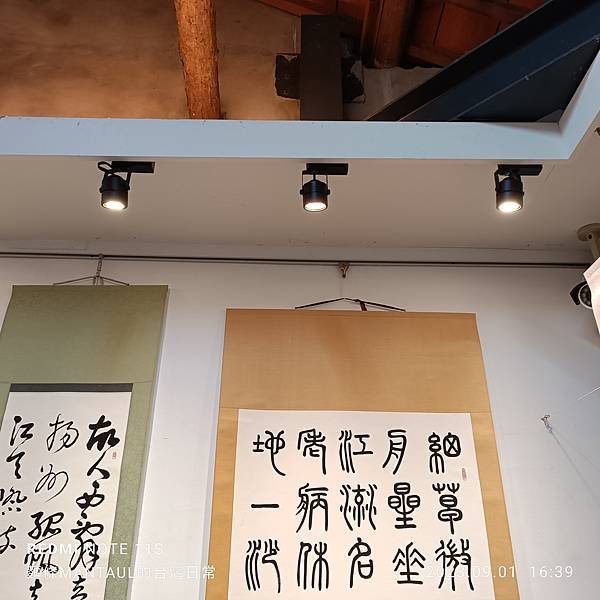 細草微
舟星垂
江流名
老病休
地一沙
故人西辭
揚州孤帆
江天際流
REDMI NOTE 11S
MANTAUL的台灣日常
2023.09.01 16:39